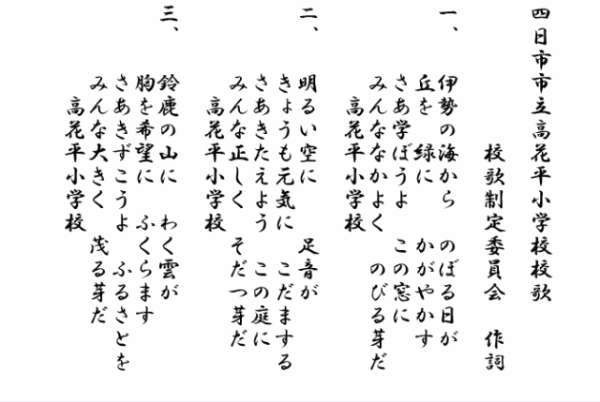 四日市市立高花平小学校校歌
校歌制定委員会　作詞
一、
伊勢の海から　のぼる日が
丘を　緑に　かがやかす
さあ学ぼうよ　この窓に
みんななかよく　のびる芽だ
高花平小学校
二、
明るい空に　足音が
きょうも元気に　こだまする
さあきたえよう　この庭に
みんな正しく　そだつ芽だ
高花平小学校
三、
鈴鹿の山に　わく雲が
胸を希望に　ふくらます
さあきずこうよ　ふるさとを
みんな大きく　茂る芽だ
高花平小学校